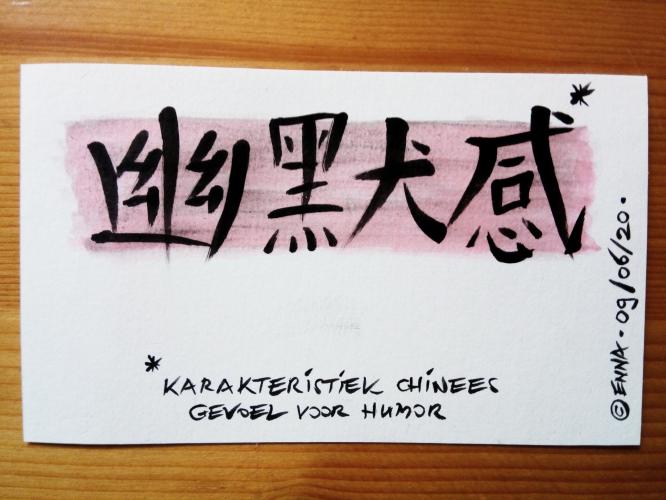 幽默感*
*KARAKTERISTIEK CHINEES
GEVOEL VOOR HUMOR
© ENNA · 09/06/20 ·